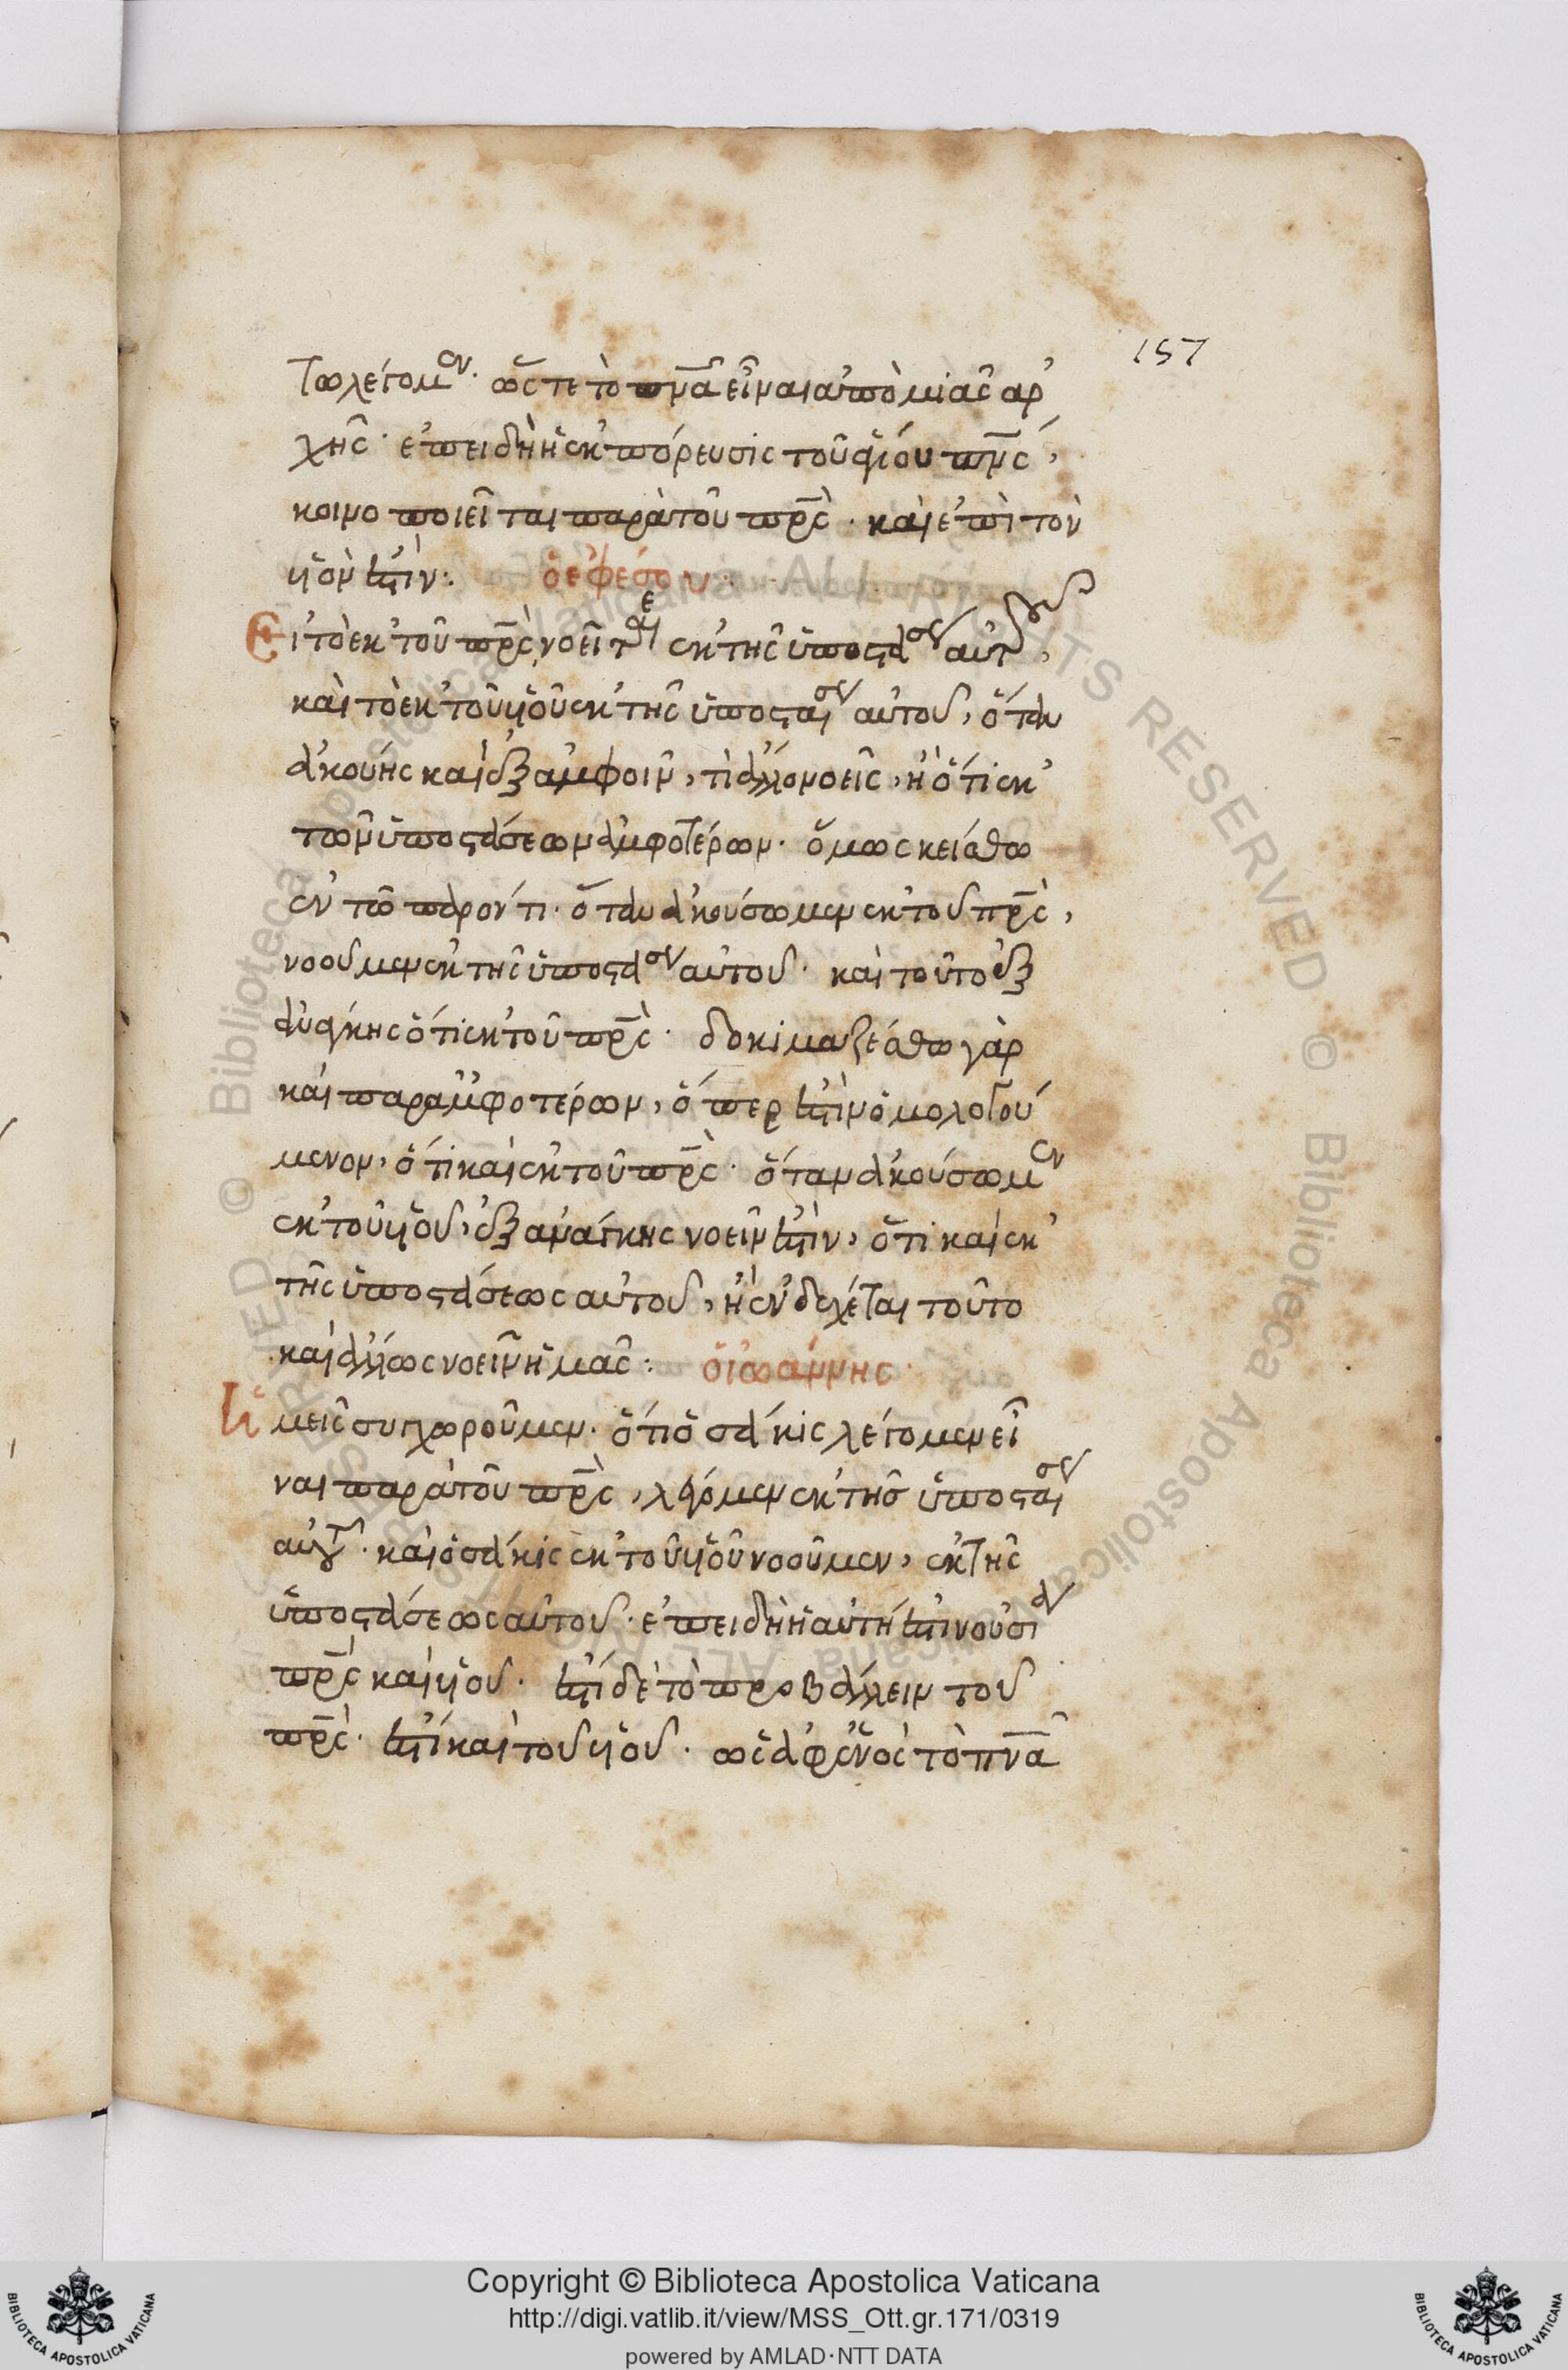 157
τω λέγομεν· ὥστε τὸ πνᾶ εἶναι ἀπὸ μιᾶς ἀρ
χῆς· ἐπειδὴ ἡ ἐκπόρευσις τοῦ ἁγίου πνς,
κοινοποιεῖται παρὰ τοῦ πρς· καὶ ἐπὶ τὸν
υἱόν ἐστιν: ὁ ἐφέσου·
Εἰ τὸ ἐκ τοῦ πρς, νοεῖται ἐκ τῆς ὑποστάσεως αὐτοῦ,
καὶ τὸ ἐκ τοῦ υἱοῦ ἐκ τῆς ὑποστάσεως αὐτοῦ, ὅταν
ἀκούῃς καὶ ἐξ ἀμφοῖν, τί ἄλλο νοεῖς, ἢ ὅτι ἐκ
τῶν ὑποστάσεων ἀμφοτέρων· ὅμως κείσθω
ἐν τῶ παρόντι· ὅταν ἀκούσωμεν ἐκ τοῦ πρς,
νοοῦμεν ἐκ τῆς ὑποστάσεως αὐτοῦ· καὶ τοῦτο ἐξ
ἀνάγκης ὅτι ἐκ τοῦ πρς· δοκιμαζέσθω γὰρ
καὶ παρ ἀμφοτέρων, ὅπερ ἐστὶν ὁμολογού
μενον, ὅτι καὶ ἐκ τοῦ πρς· ὅταν ἀκούσωμεν
ἐκ τοῦ υἱοῦ, ἐξ ἀνάγκης νοεῖν ἐστὶν, ὅτι καὶ ἐκ
τῆς ὑποστάσεως αὐτοῦ, ἢ ἐνδέχεται τοῦτο
καὶ ἄλλως νοεῖν ἡμᾶς: ὁ ἰωάννης·
Ἡμεῖς συγχωροῦμεν· ὅτι ὁσάκις λέγομεν εἶ
ναι παρὰ τοῦ πρς, λέγομεν ἐκ τῆς ὑποστάσεως
αὐτοῦ· καὶ ὁσάκις ἐκ τοῦ υἱοῦ νοοῦμεν, ἐκ τῆς
ὑποστάσεως αὐτοῦ· ἐπειδὴ ἡ αὐτή ἐστιν οὐσία
πρς καὶ υἱοῦ· ἔστι δὲ τὸ προβάλλειν τοῦ
πρς· ἔστι καὶ τοῦ υἱοῦ· ὡς ἀφ ἑνὸς τὸ πνᾶ
Copyright © Biblioteca Apostolica Vaticana
http://digi.vatlib.it/view/MSS_Ott.gr.171/0319
powered by AMLAD·NTT DATA
BIBLIOTECA APOSTOLICA VATICANA
BIBLIOTECA APOSTOLICA VATICANA